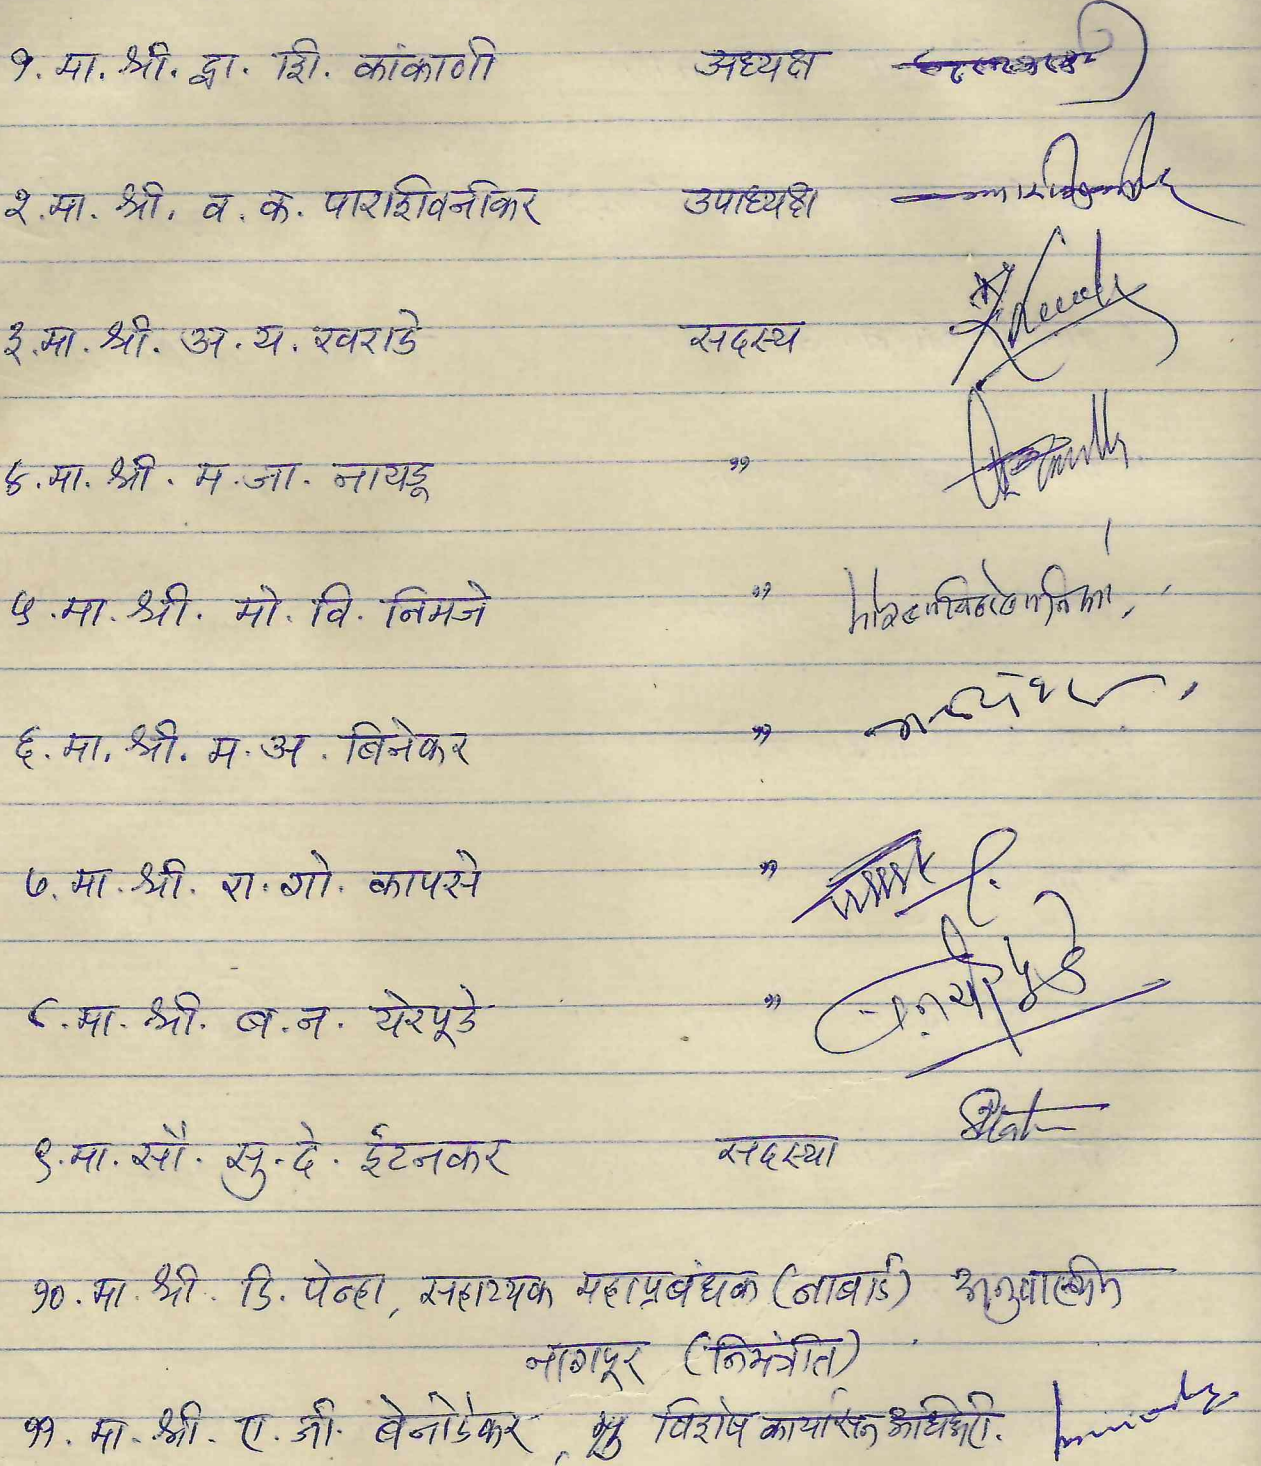 १. मा. श्री. द्वा. शि. कांकाणी अध्यक्ष
२. मा. श्री. व. क. पाराशिवनीकर उपाध्यक्ष
३. मा. श्री. अ. य. खराडे सदस्य
४. मा. श्री. म. जा. नायडू "
५. मा. श्री. मो. वि. निमजे "
६. मा. श्री. म. अ. बिनेकर "
७. मा. श्री. रा. गो. कापसे "
८. मा. श्री. ब. न. येरपूडे "
९. मा. सौ. सु. दे. ईटनकर सदस्या
१०. मा. श्री. डि. पेन्हा, सहाय्यक महाप्रबंधक (नाबार्ड)
नागपूर (निमंत्रीत)
११. मा. श्री. ए. जी. बेनोडेकर, विशेष कार्यासन अधिकारी.